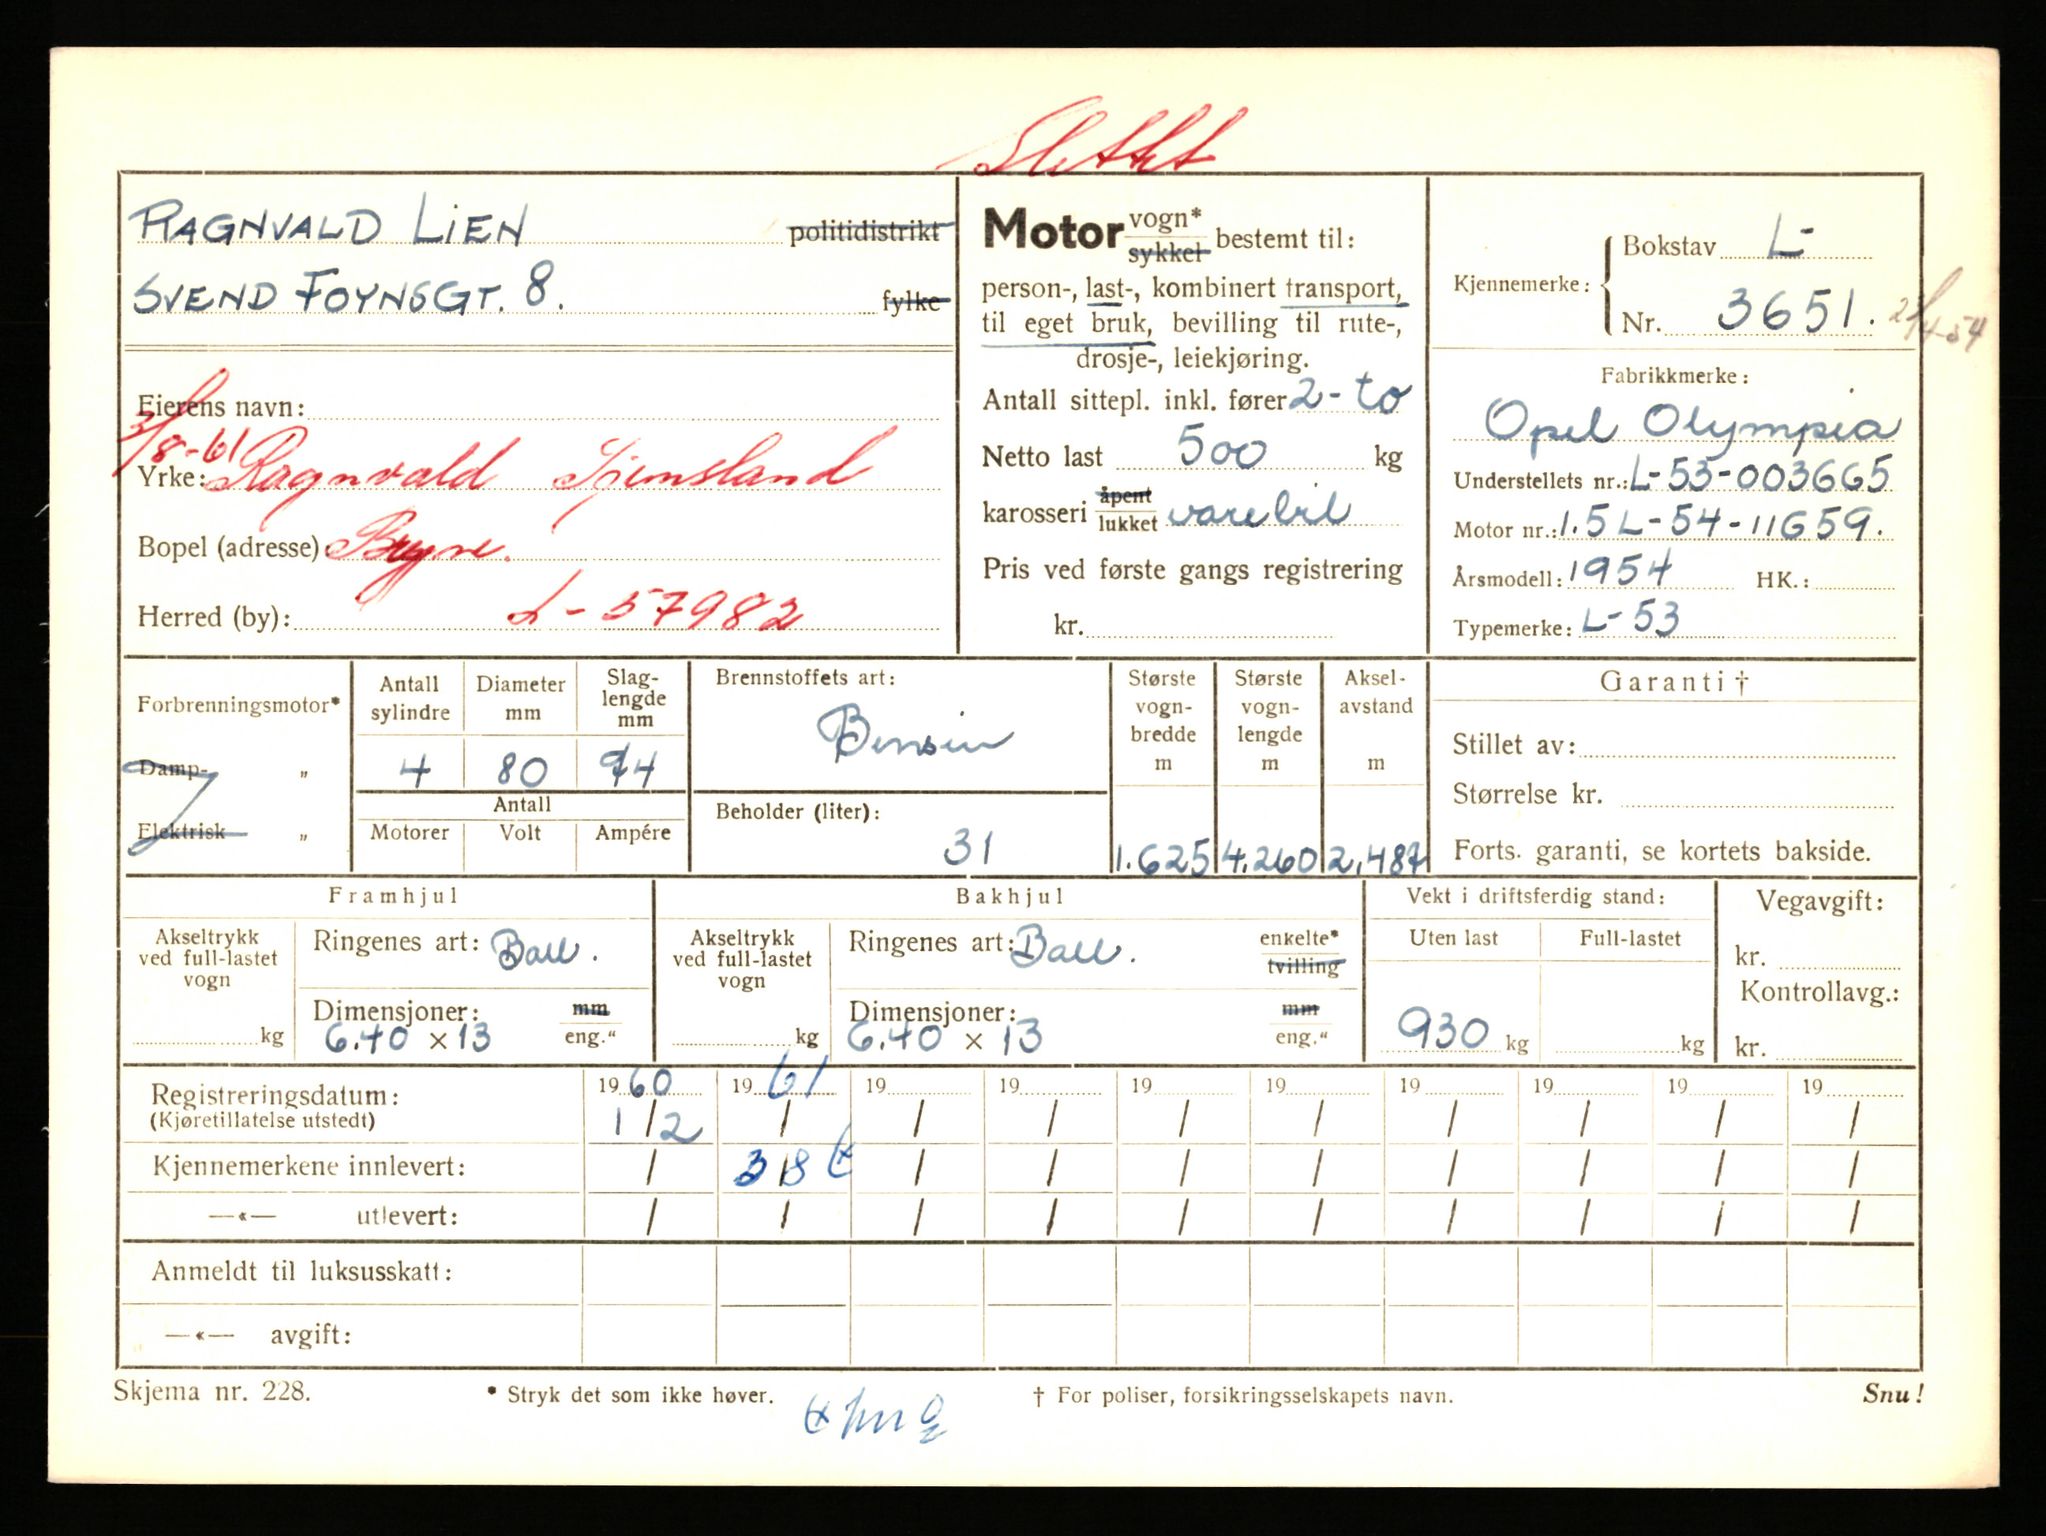 Slettet
RAGNVALD LIEN politidistrikt
SVEND FOYNSGT. 8. fylke
Eierens navn:
3/8-61
Yrke: Ragnvald Tjemsland
Bopel (adresse) Bryne.
Herred (by): L-57982
Motor vogn* sykkel bestemt til:
person-, last-, kombinert transport,
til eget bruk, bevilling til rute-,
drosje-, leiekjøring.
Antall sittepl. inkl. fører 2-to
Netto last 500 kg
karosseri åpent lukket varebil
Pris ved første gangs registrering
kr.
Kjennemerke: Bokstav L-
Nr. 3651.
Fabrikkmerke:
Opel Olympia
Understellets nr.: L-53-003665
Motor nr.: 1.5L-54-11659.
Årsmodell: 1954 HK.:
Typemerke: L-53
Forbrenningsmotor*
Damp- „
Elektrisk „
Antall sylindre Diameter mm Slag-lengde mm
4 80 74
Antall
Motorer Volt Ampére
Brennstoffets art:
Bensin
Beholder (liter):
31
Største vogn-bredde m Største vogn-lengde m Aksel-avstand m
1.625 4.260 2,487
Garanti †
Stillet av:
Størrelse kr.
Forts. garanti, se kortets bakside.
Framhjul
Akseltrykk ved full-lastet vogn
kg
Ringenes art: Ball.
Dimensjoner: mm
6.40 x 13 eng."
Bakhjul
Akseltrykk ved full-lastet vogn
kg
Ringenes art: Ball. enkelte* tvilling
Dimensjoner: mm
6.40 x 13 eng."
Vekt i driftsferdig stand:
Uten last Full-lastet
930 kg kg
Vegavgift:
kr.
Kontrollavg.:
kr.
Registreringsdatum: 1960 1961 19 19 19 19 19 19 19 19
(Kjøretillatelse utstedt) 1/2 / / / / / / / / /
Kjennemerkene innlevert: / 3/8 / / / / / / / /
—«— utlevert: / / / / / / / / / /
Anmeldt til luksusskatt:
—«— avgift:
Skjema nr. 228. * Stryk det som ikke høver. † For poliser, forsikringsselskapets navn. Snu!